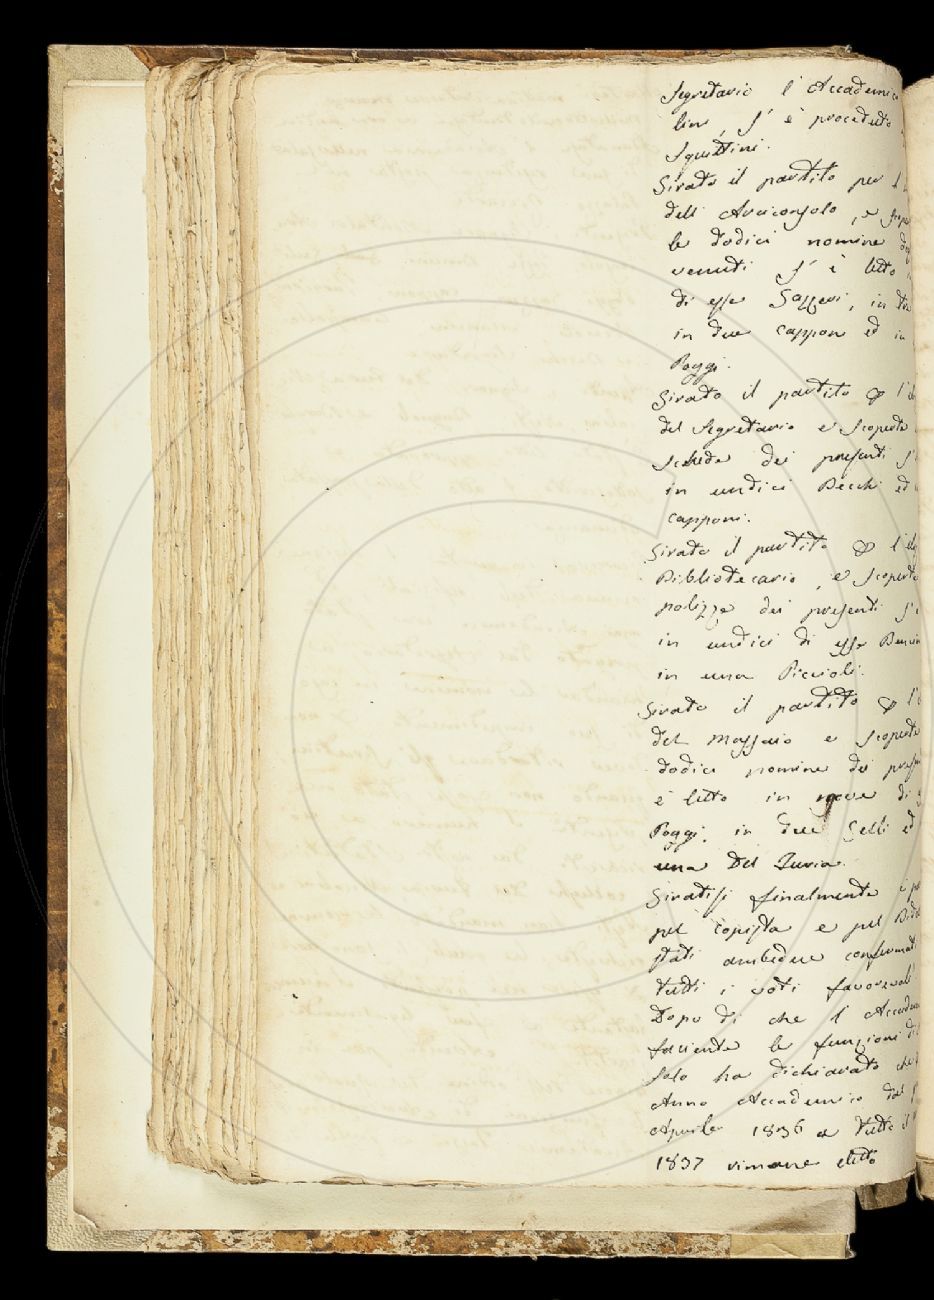 Segretario l'Accademico
lini, s'è proceduto
Squittini.
Girato il partito per l'
dell'Arciconsolo, e scope
le dodici nomine de
venuti s'è letto
di esse Gazzeri, in
in due Capponi ed in
Poggi.
Girato il partito l'
del Segretario e scoperte
schede dei presenti s'
in undici Becchi ed
Capponi.
Girato il partito l'
Bibliotecario, e scoperte
polizze dei presenti s'
in undici di esse
in una Piccioli.
Girato il partito l'
del Massaio e scoperte
dodici nomine dei pres
è letto in nove di
Poggi, in due Gelli ed
una Del Furia.
Giratisi finalmente i
pel Copista e pel Bid
stati ambedue confermati
tutti i voti favorevoli
Dopo di che l'Accadem
faciente le funzioni
solo ha dichiarato che
Anno Accademico dal
Aprile 1836 a tutto
1837 rimane eletto